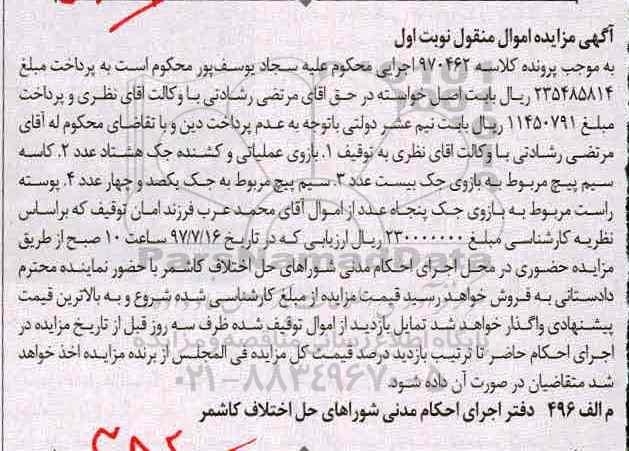 آگهی مزایده اموال منقول نوبت اول
به موجب پرونده کلاسه ۹۷۰۴۶۲ اجرایی محکوم علیه سجاد یوسف‌پور محکوم است به پرداخت مبلغ
۲۳۵۴۸۵۸۱۴ ریال بابت اصل خواسته در حق اقای مرتضی رشادتی با وکالت اقای نظری و پرداخت
مبلغ ۱۱۴۵۰۷۹۱ ریال بابت نیم عشر دولتی باتوجه به عدم پرداخت دین و با تقاضای محکوم له آقای
مرتضی رشادتی با وکالت اقای نظری به توقیف ۱. بازوی عملیاتی و کشنده جک هشتاد عدد ۲. کاسه
سیم پیچ مربوط به بازوی جک بیست عدد ۳. سیم پیچ مربوط به جک یکصد و چهار عدد ۴. پوسته
راست مربوط به بازوی جک پنجاه عدد از اموال آقای محمد عرب فرزند امان توقیف که براساس
نظریه کارشناسی مبلغ ۲۳۰۰۰۰۰۰۰ ریال ارزیابی که در تاریخ ۹۷/۷/۱۶ ساعت ۱۰ صبح از طریق
مزایده حضوری در محل اجرای احکام مدنی شوراهای حل اختلاف کاشمر با حضور نماینده محترم
دادستانی به فروش خواهد رسید قیمت مزایده از مبلغ کارشناسی شده شروع و به بالاترین قیمت
پیشنهادی واگذار خواهد شد تمایل بازدید از اموال توقیف شده ظرف سه روز قبل از تاریخ مزایده در
اجرای احکام حاضر تا ترتیب بازدید درصد قیمت کل مزایده فی المجلس از برنده مزایده اخذ خواهد
شد متقاضیان در صورت آن داده شود.
م الف ۴۹۶ دفتر اجرای احکام مدنی شوراهای حل اختلاف کاشمر
ParsNamadData
پایگاه اطلاع رسانی مناقصه و مزایده
۰۲۱-۸۸۳۴۹۶۷۰